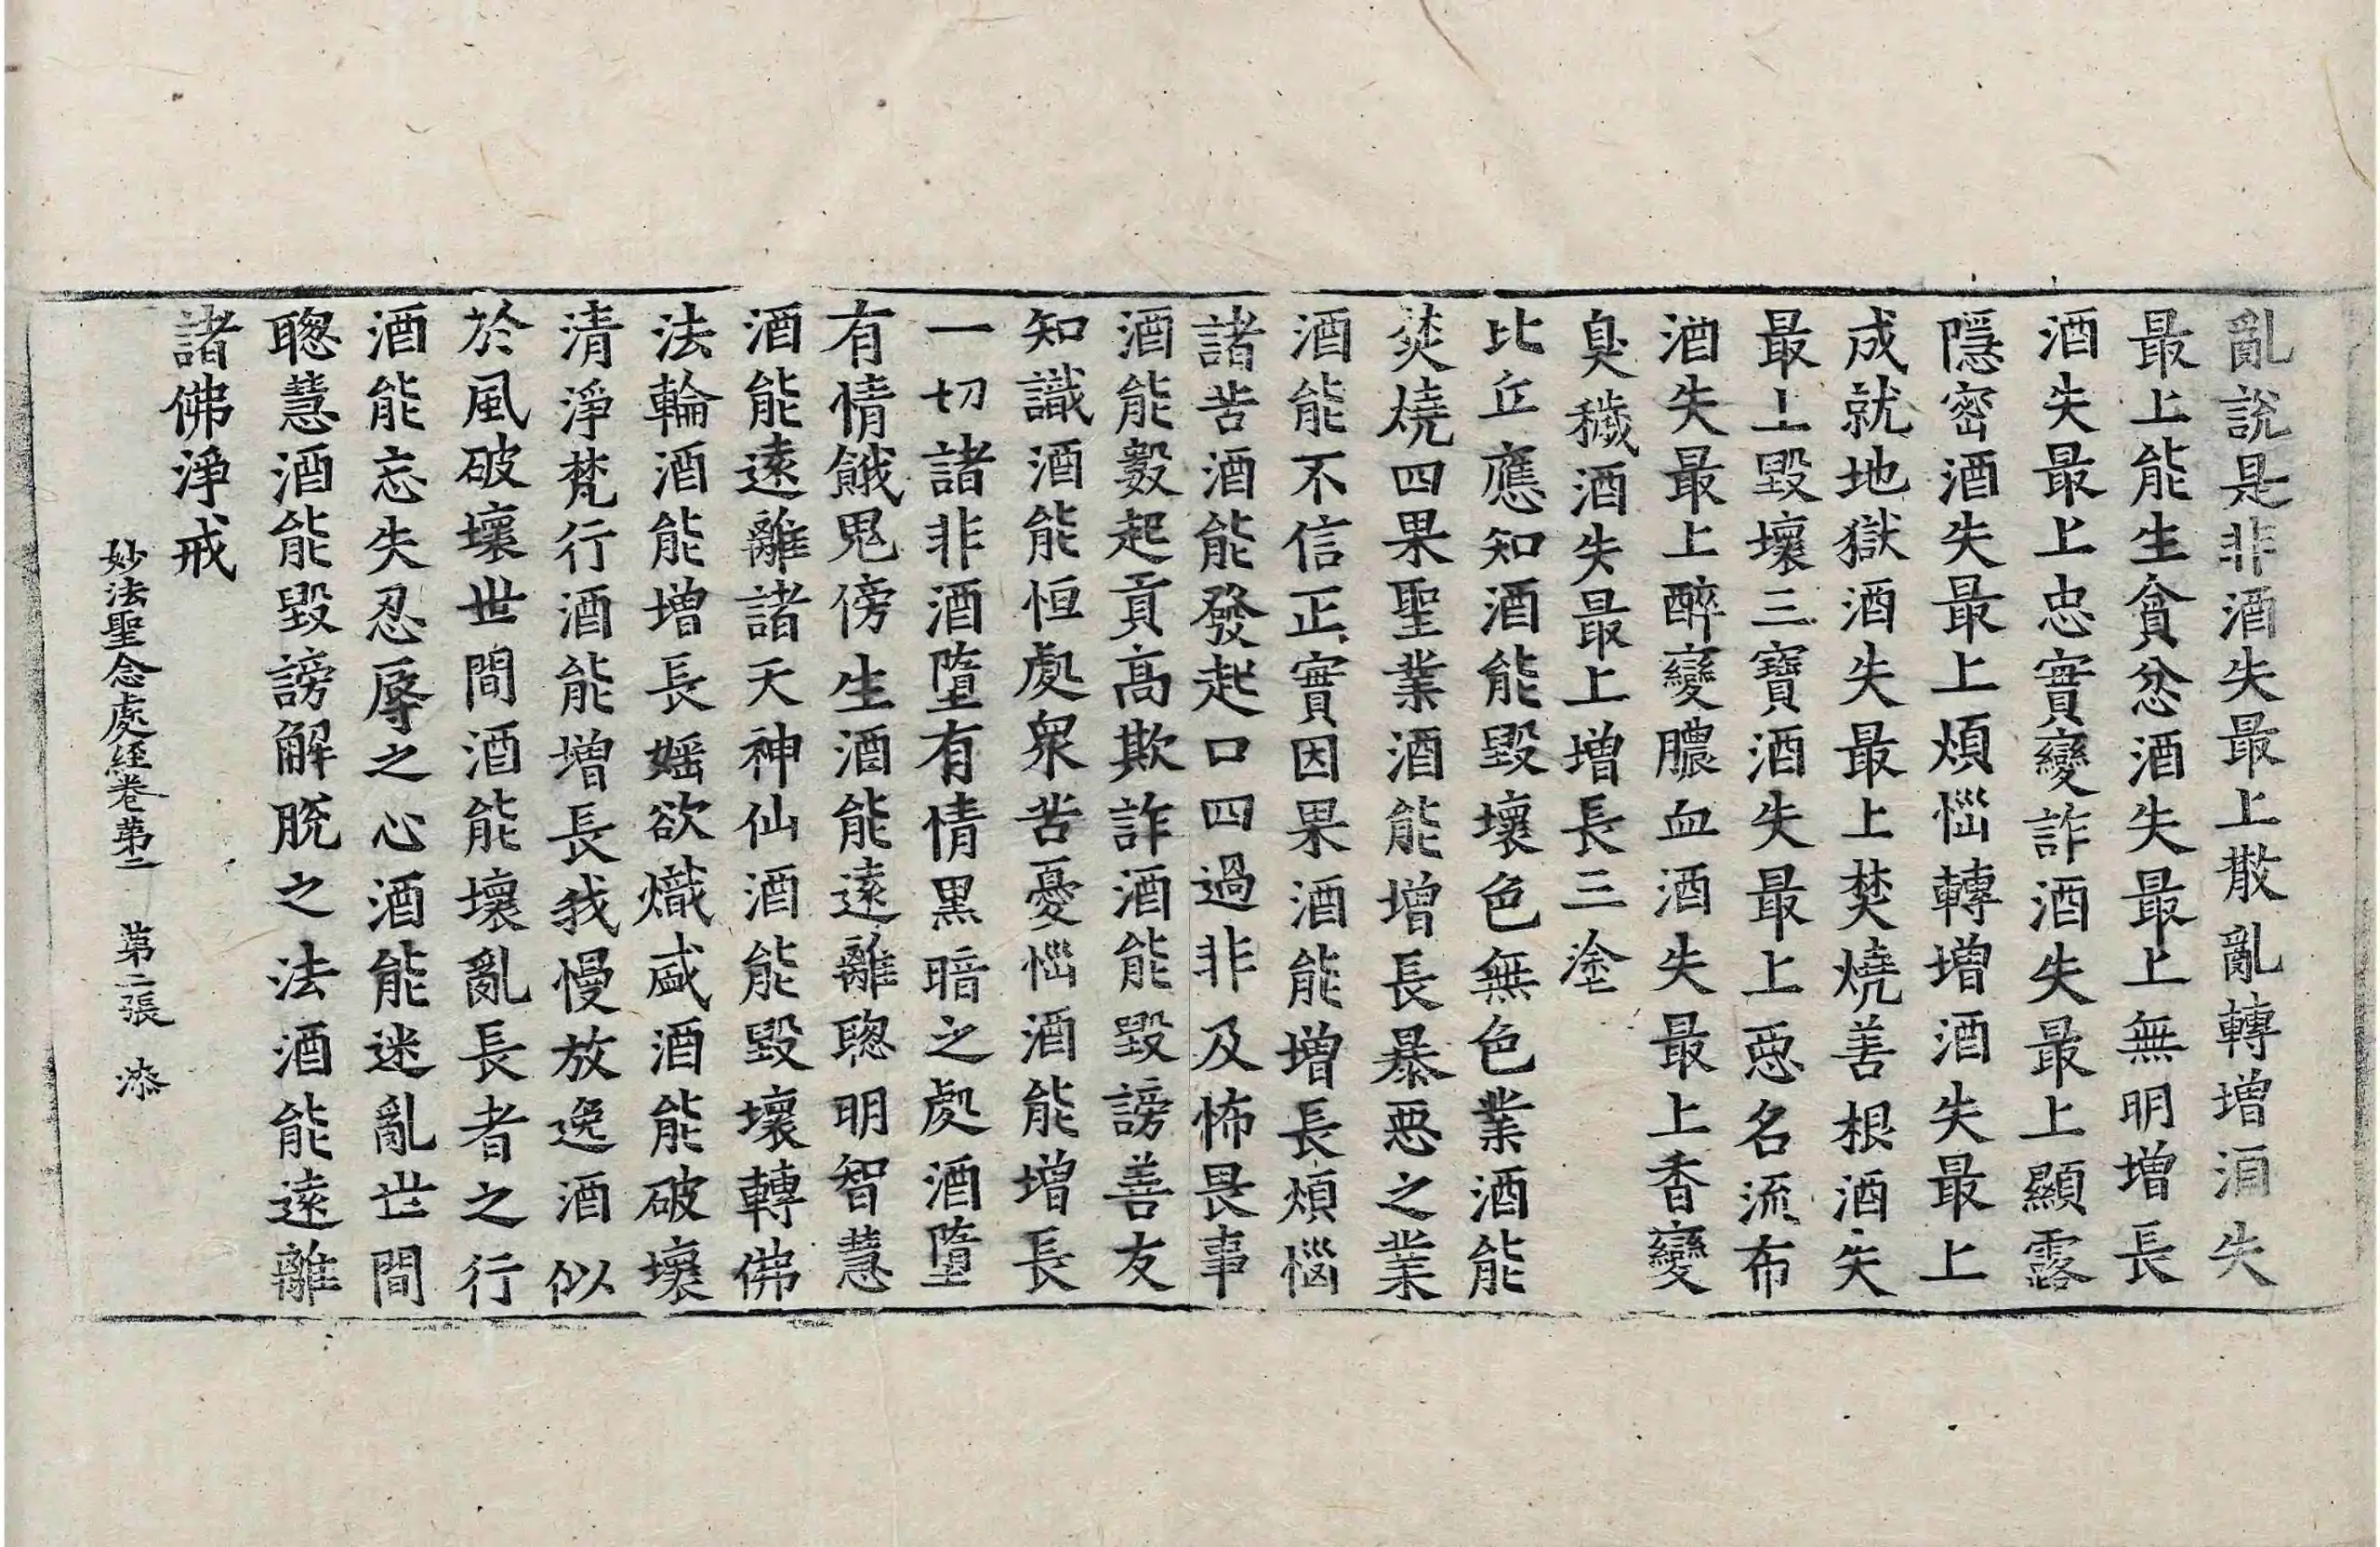 亂說是非酒失最上散亂轉增酒失
最上能生貪忿酒失最上無明增長
酒失最上忠實變詐酒失最上顯露
隱密酒失最上煩惱轉增酒失最上
成就地獄酒失最上焚燒善根酒失
最上毀壞三寶酒失最上惡名流布
酒失最上醉變膿血酒失最上香變
臭穢酒失最上增長三塗
比丘應知酒能毀壞色無色業酒能
焚燒四果聖業酒能增長暴惡之業
酒能不信正實因果酒能增長煩惱
諸苦酒能發起口四過非及怖畏事
酒能發起貢高欺詐酒能毀謗善友
知識酒能恒處衆苦憂惱酒能增長
一切諸非酒墮有情黑暗之處酒墮
有情餓鬼傍生酒能遠離聰明智慧
酒能遠離諸天神仙酒能毀壞轉佛
法輪酒能增長婬欲熾盛酒能破壞
清淨梵行酒能增長我慢放逸酒似
於風破壞世間酒能壞亂長者之行
酒能忘失忍辱之心酒能迷亂世間
聰慧酒能毀謗解脫之法酒能遠離
諸佛淨戒
妙法聖念處經卷第二 第二張 漆